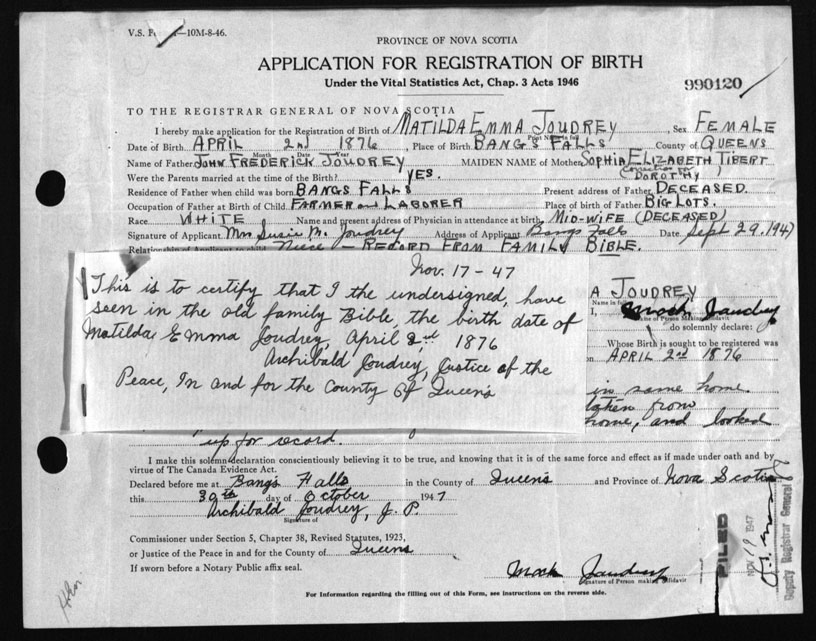 V.S. F    —10M-8-46.
PROVINCE OF NOVA SCOTIA
APPLICATION FOR REGISTRATION OF BIRTH
Under the Vital Statistics Act, Chap. 3 Acts 1946
990120
TO THE REGISTRAR GENERAL OF NOVA SCOTIA
I hereby make application for the Registration of Birth of MATILDA EMMA JOUDREY, Sex FEMALE
Print Name in full
Date of Birth APRIL 2nd 1876, Place of Birth BANGS FALLS County of QUEENS
Month Date Year
Name of Father JOHN FREDERICK JOUDREY MAIDEN NAME of Mother SOPHIA ELIZABETH TIBERT
Were the Parents married at the time of the Birth? YES. DOROTHY
Residence of Father when child was born BANGS FALLS Present address of Father DECEASED.
Occupation of Father at Birth of Child. FARMER and LABORER Place of birth of Father BIG LOTS.
Race WHITE Name and present address of Physician in attendance at birth MID-WIFE (DECEASED)
Signature of Applicant Mrs Susie M. Joudrey Address of Applicant Bangs Falls Date Sept 29, 1947
Relationship of Applicant to child Niece — RECORD FROM FAMILY BIBLE.
Nov. 17 - 47
This is to certify that I the undersigned, have
seen in the old family Bible, the birth date of
Matilda Emma Joudrey, April 2nd 1876
Archibald Joudrey, Justice of the
Peace, In and for the County of Queens
A JOUDREY
Name in full
I,
Name of Person Making Affidavit
do solemnly declare:
Whose Birth is sought to be registered was
on APRIL 2nd 1876
in same home.
taken from
home, and looked
up for record.
I make this solemn declaration conscientiously believing it to be true, and knowing that it is of the same force and effect as if made under oath and by
virtue of The Canada Evidence Act.
Declared before me at Bangs Falls in the County of Queens and Province of Nova Scotia
this 30th day of October 1947
Archibald Joudrey, J. P.
Signature of
Commissioner under Section 5, Chapter 38, Revised Statutes, 1923,
or Justice of the Peace in and for the County of Queens
If sworn before a Notary Public affix seal.
Signature of Person making Affidavit
For Information regarding the filling out of this Form, see instructions on the reverse side.
FILED
NOV 19 1947
Deputy Registrar General